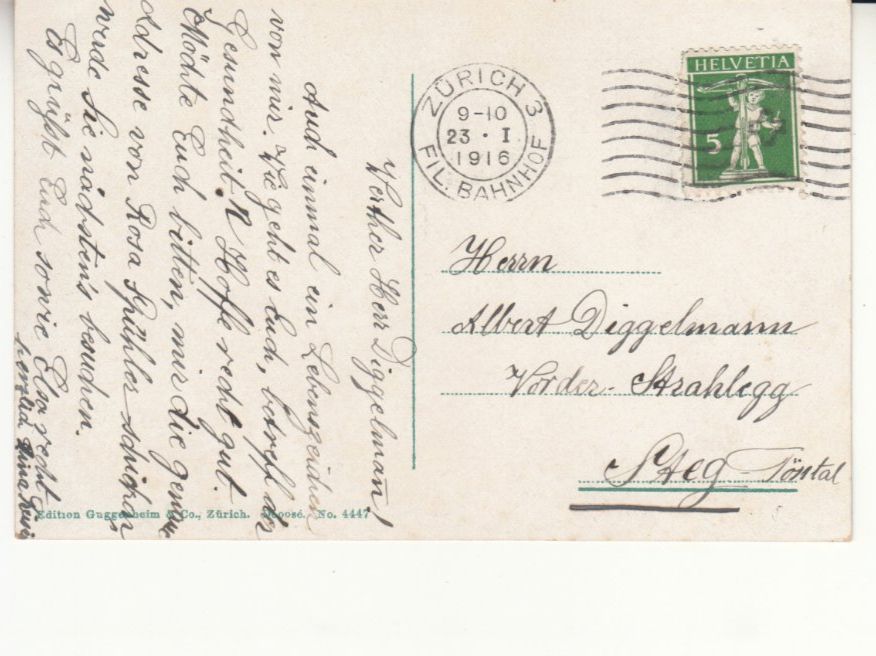 Werther Herr Diggelmann!
Auch einmal ein Lebenszeichen
von mir. Wie geht es Euch, betreff der
Gesundheit? Hoffe recht gut.
Möchte Euch bitten, mir die genaue
Adresse von Rosa Spühler schicken,
werde Sie nächstens besuchen.
Es grüßt Euch sowie Elsa recht
herzlich
Edition Guggenheim & Co., Zürich. Déposé. No. 4447
ZÜRICH 3
9-10
23 · I.
1916
FIL. BAHNHOF
HELVETIA
5
Herrn
Albert Diggelmann
Vorder-Strahlegg
Steg Tösstal